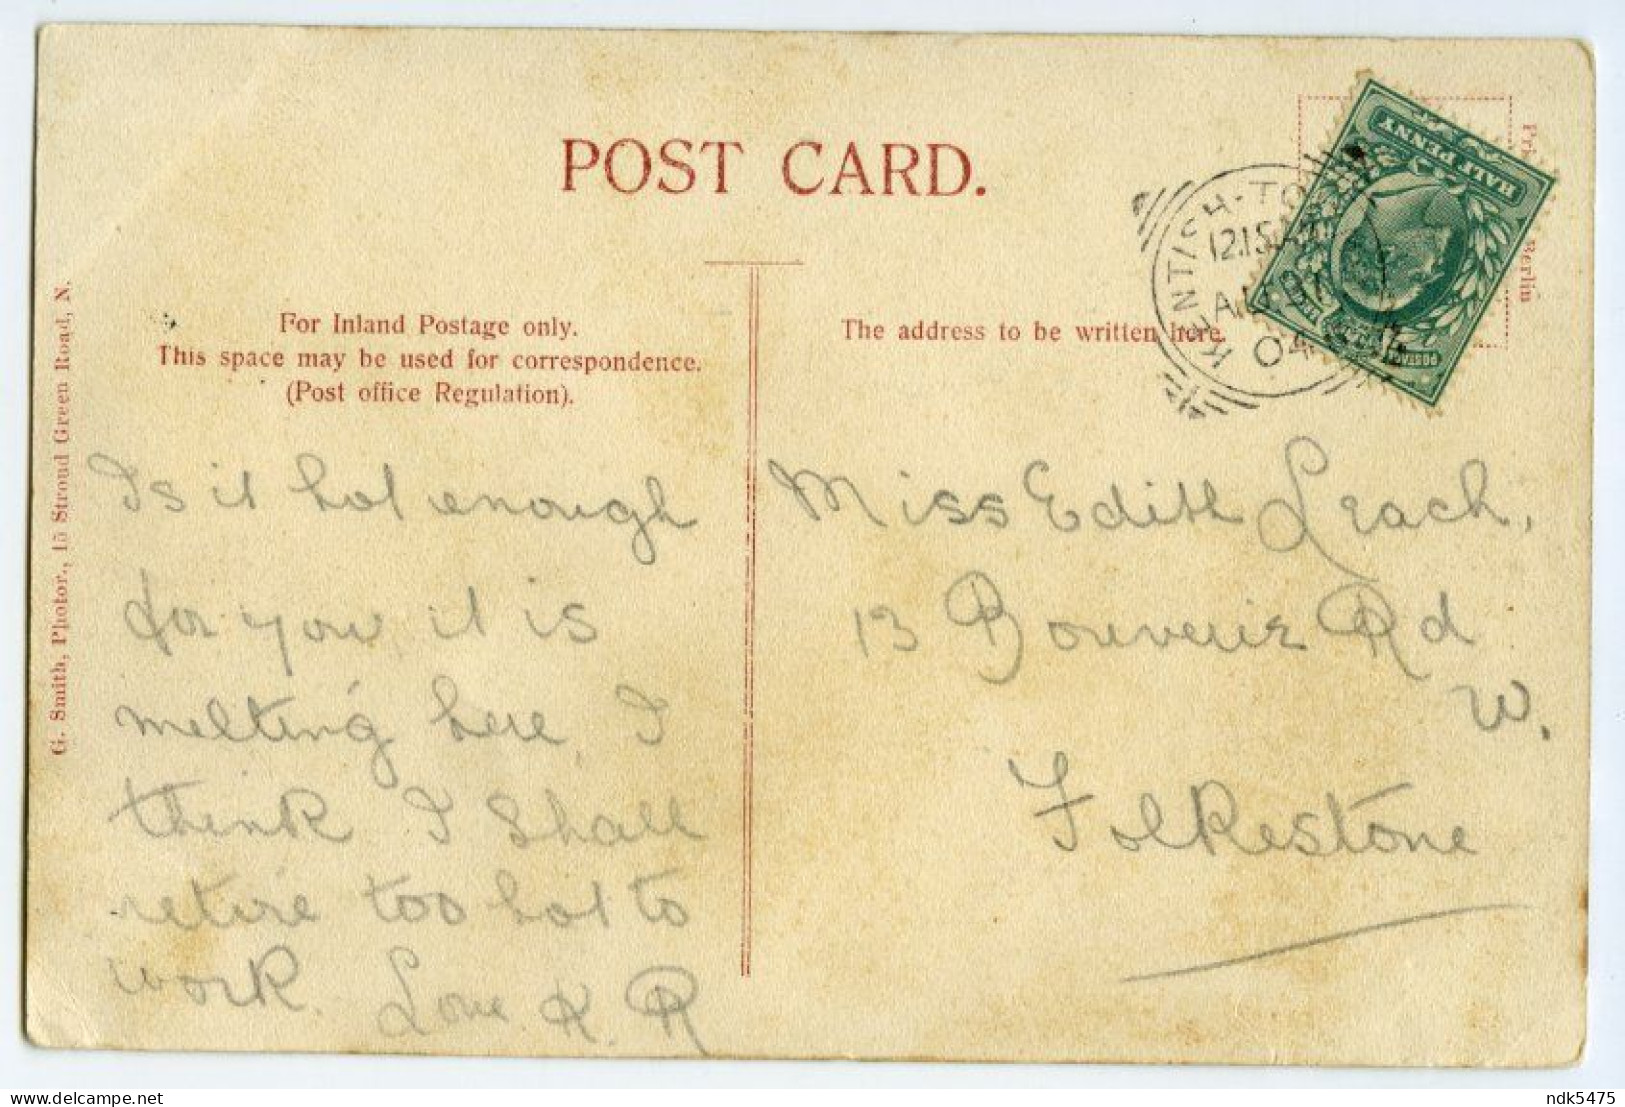 POST CARD.
For Inland Postage only.
This space may be used for correspondence.
(Post office Regulation).
The address to be written here.
G. Smith, Photor., 15 Stroud Green Road, N.
Berlin
HALF PENNY
POSTAGE
KENTISH-TOWN
12.15 AM
AU 9
04
Is it hot enough
for you, it is
melting here, I
think I shall
retire too hot to
work. Love. K. R
Miss Edith Leach,
13 Bouverie Rd
W.
Folkestone
ndk5475